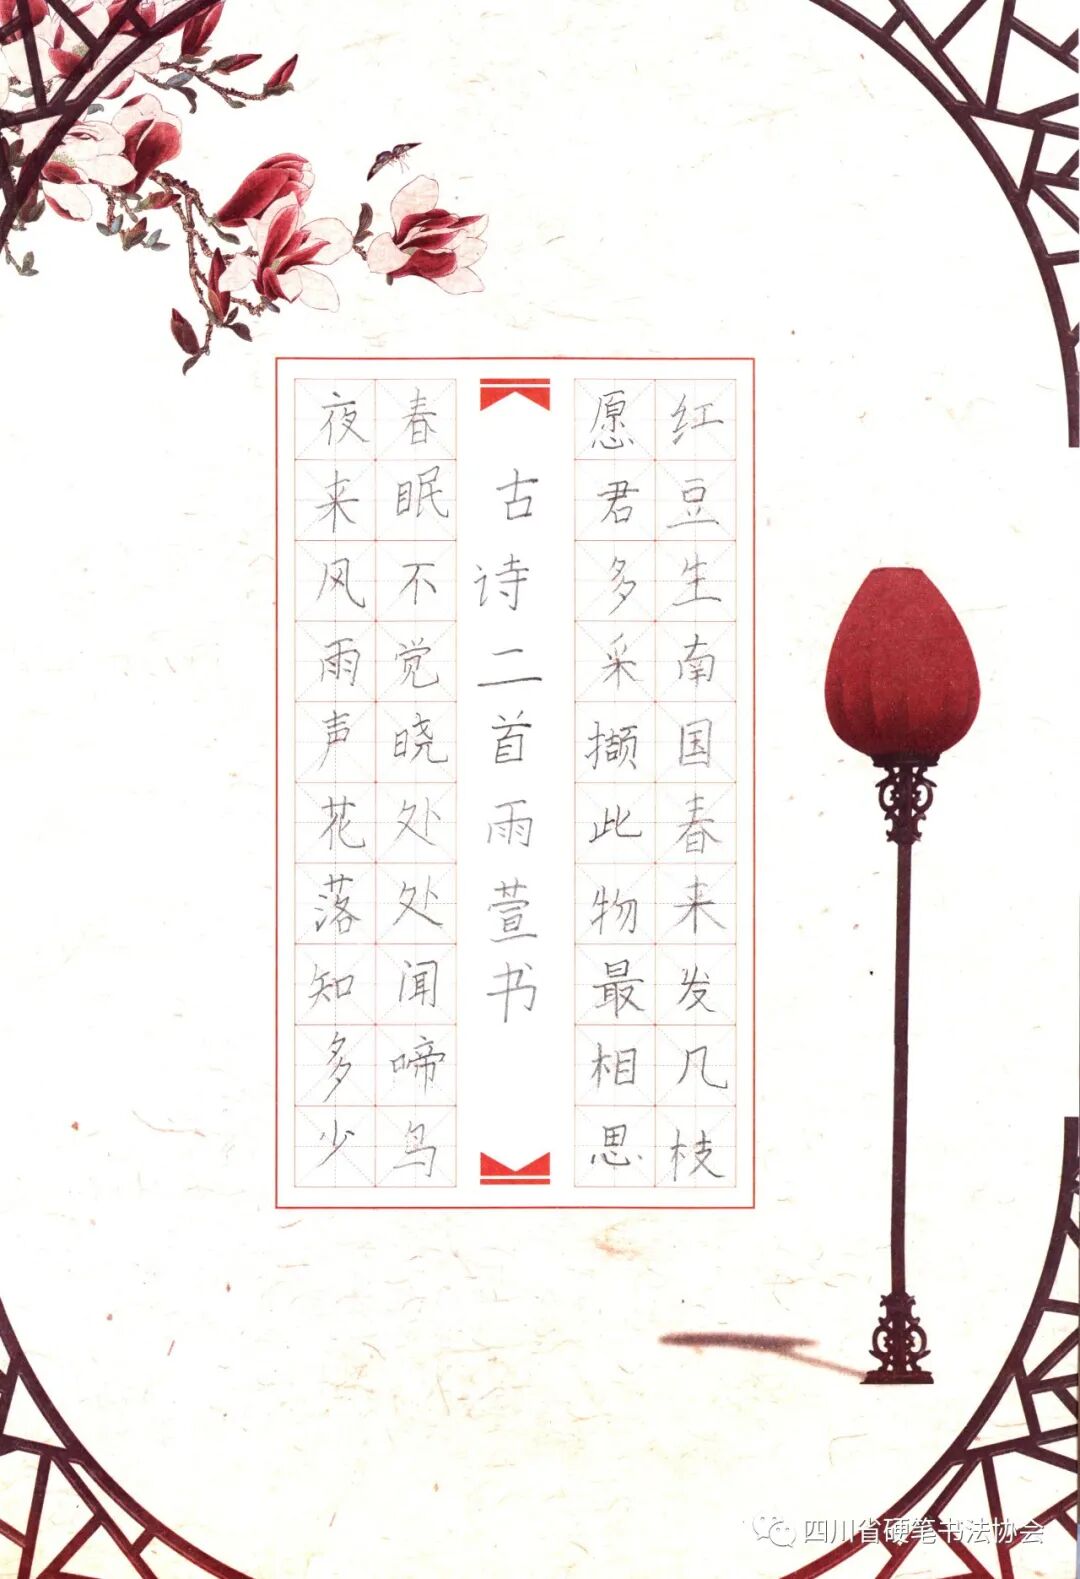 红豆生南国春来发几枝
愿君多采撷此物最相思
古诗二首雨萱书
春眠不觉晓处处闻啼鸟
夜来风雨声花落知多少
四川省硬笔书法协会